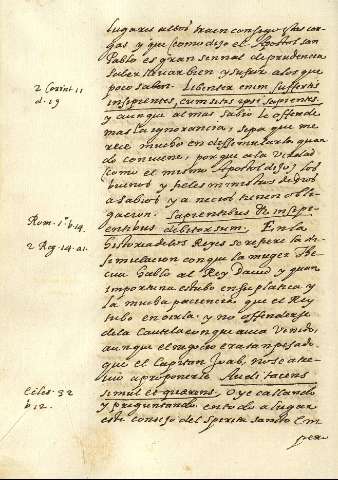 lugares altos traen consigo estas car-
gas y que (como dijo el Apostol san
Pablo es gran sennal de prudencia
saber llevar bien y sufrir a los que
2 Corint. 11
d. 19
poco saben. Libenter enim suffertis
insipientes, cum sitis ipsi sapientes
y aunque al mas sabio le ofende
mas la ignorancia, sepa que me
rece mucho en dissimularla quan
do conviene, porque a la verdad
(como el mismo Apostol dijo) los
buenos y fieles ministros de Dios
a sabios y a necios tienen obli-
Rom. 1. b. 14.
gacion. Sapientibus et insipi-
entibus debitor sum. En la
2 Reg. 14. a1.
Historia de los Reyes se refiere la di-
simulacion con que la muger The
cua hablo al Rey David y quan
importuna estubo en su platica y
la mucha paciencia que el Rey
tubo en oirla y no offenderse
de la cautela con que avia venido,
aunque el negocio era tan pesado,
que el Capitan Joab, no se atre-
vio a proponerle. Audi tacens
Eccles. 32
b 12.
simul et quærens. Oye callando
y preguntando en todo a lugar
este consejo del Spiritu Sancto Em
pero